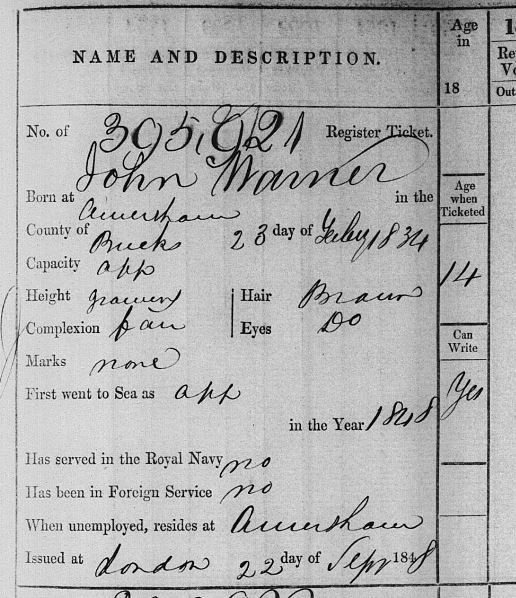 NAME AND DESCRIPTION.
Age in
18
Out
No. of 395,621 Register Ticket.
John Warner
Born at Amersham in the
County of Bucks 23 day of Feby 1834
Capacity app
Height growing Hair Brown
Complexion fair Eyes Do
Marks none
First went to Sea as app
in the Year 1848
Has served in the Royal Navy no
Has been in Foreign Service no
When unemployed, resides at Amersham
Issued at London 22 day of Sepr 1848
Age when Ticketed
14
Can Write
Yes